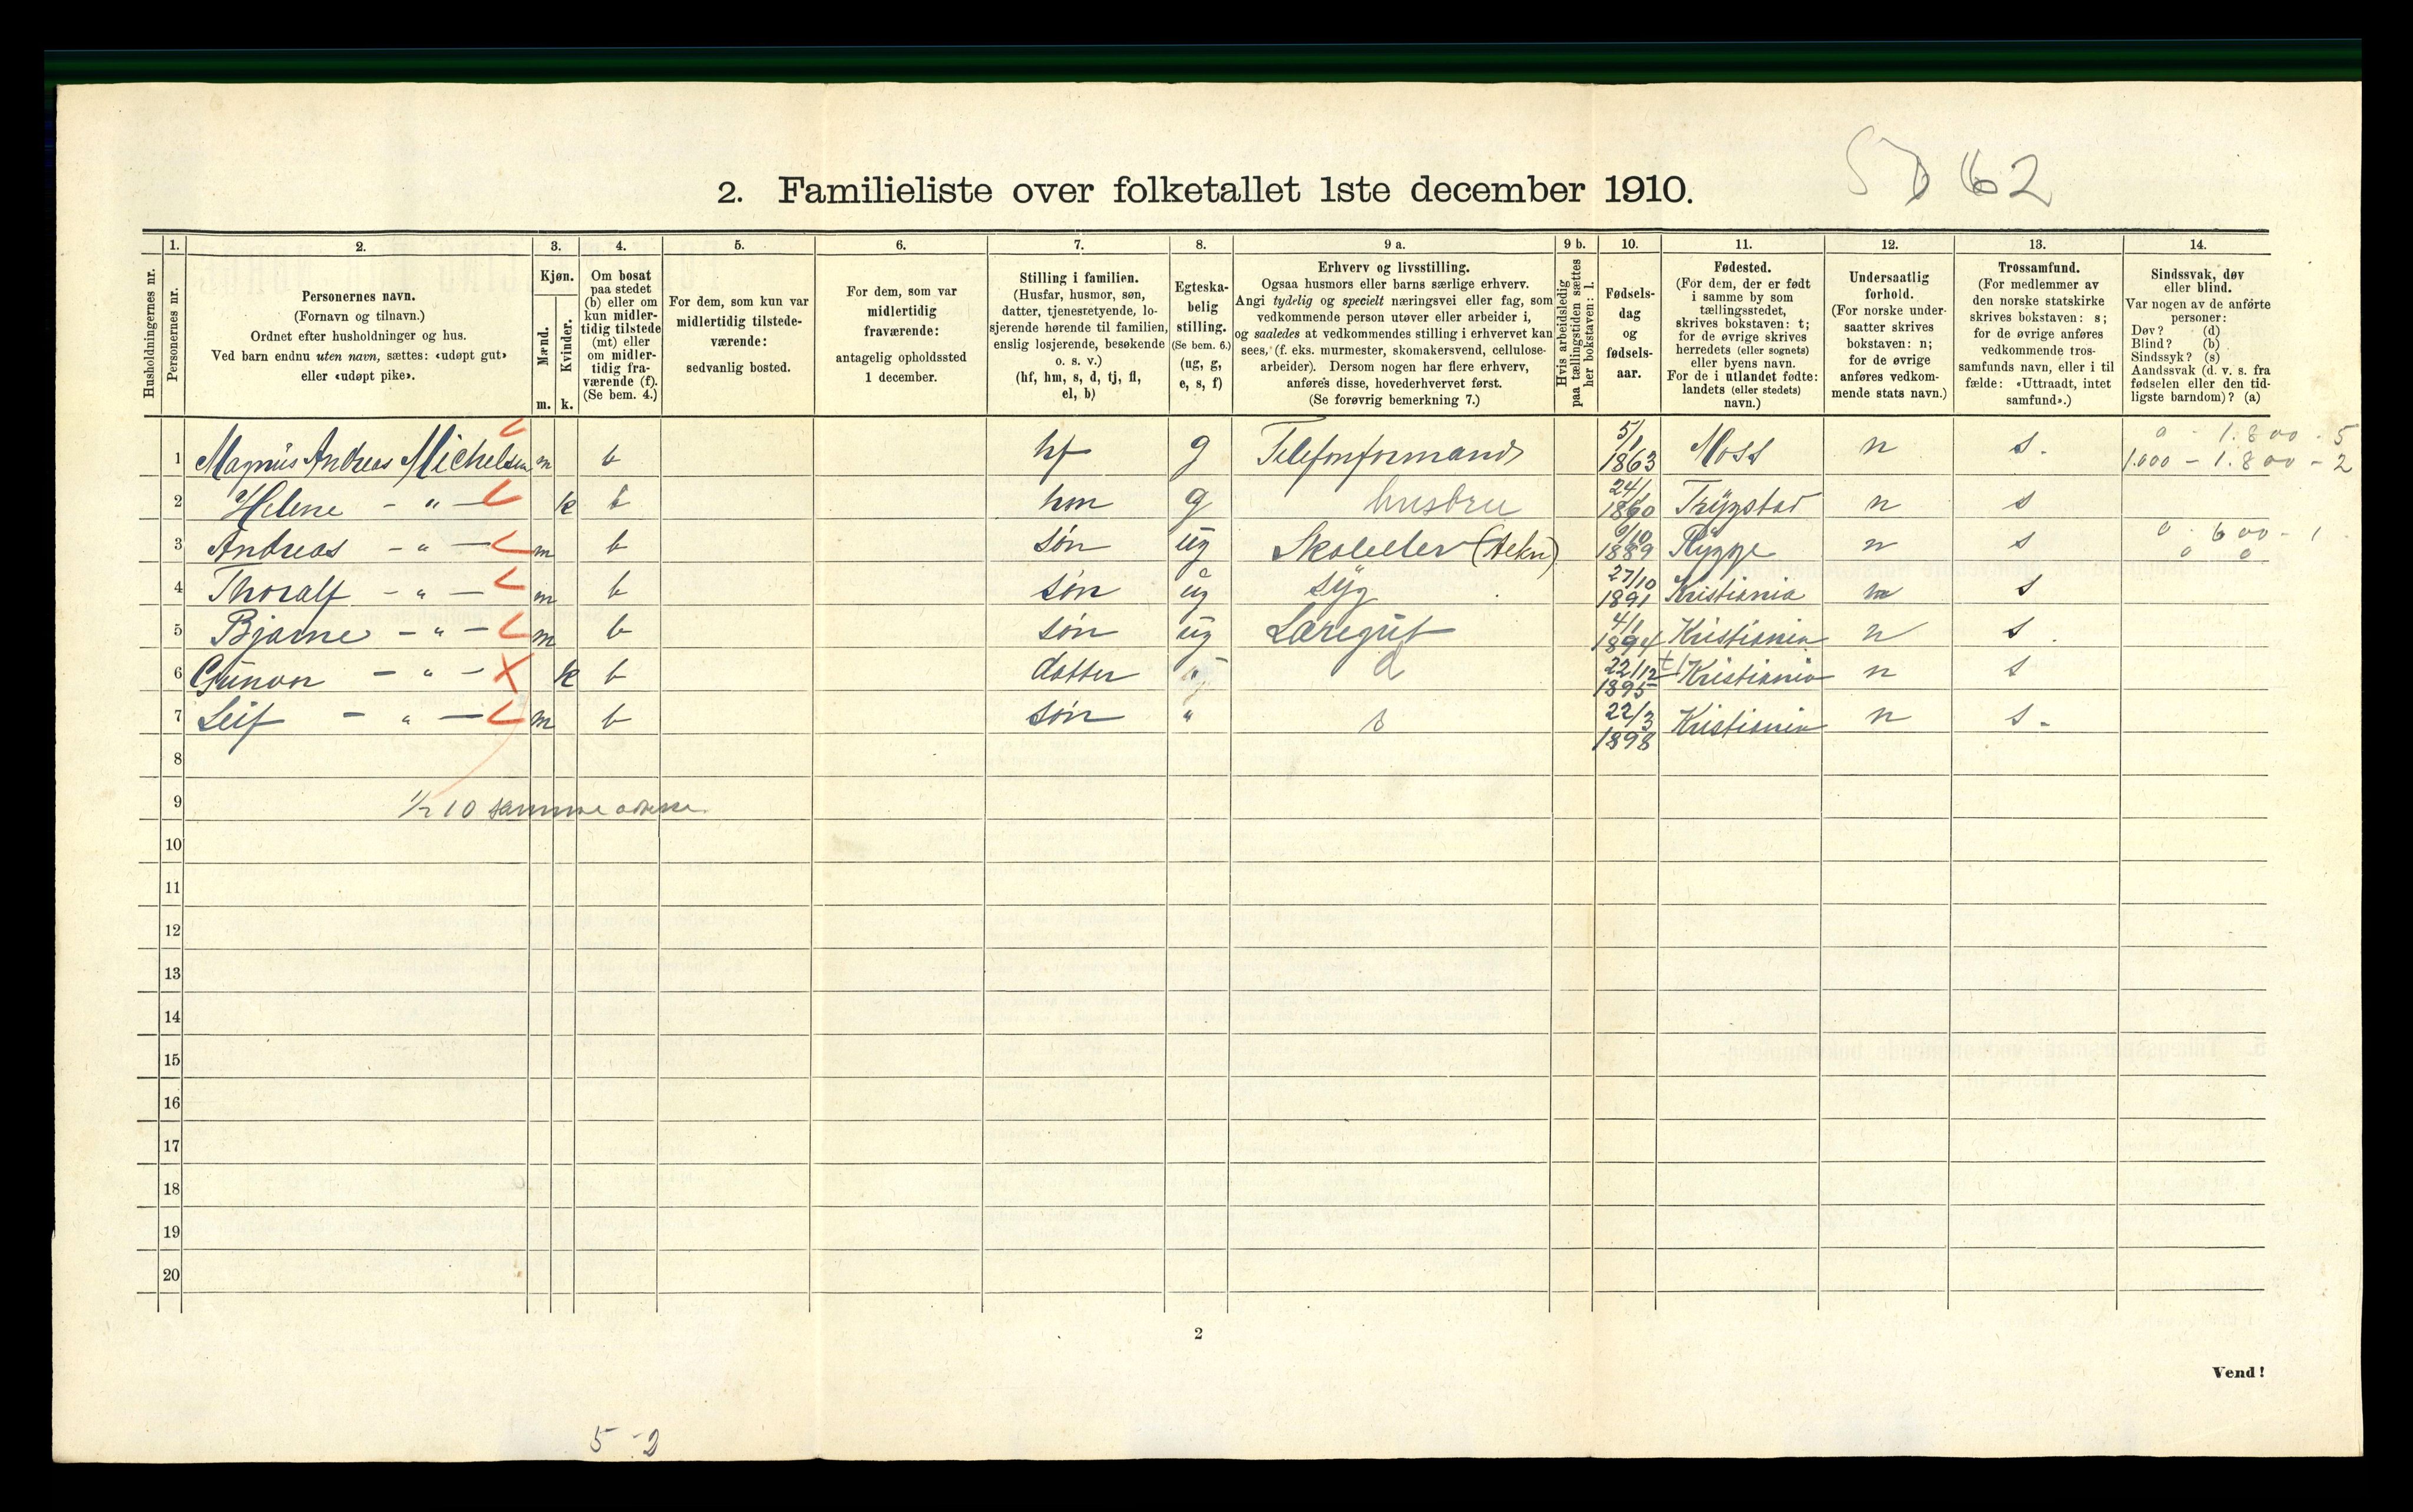 62
2. Familieliste over folketallet 1ste december 1910.
Husholdningernes nr.
1. Personernes nr.
2. Personernes navn. (Fornavn og tilnavn.) Ordnet efter husholdninger og hus. Ved barn endnu uten navn, sættes: «udøpt gut» eller «udøpt pike».
3. Kjøn. Mænd. m. Kvinder. k.
4. Om bosat paa stedet (b) eller om kun midlertidig tilstede (mt) eller om midlertidig fraværende (f). (Se bem. 4.)
5. For dem, som kun var midlertidig tilstedeværende: sedvanlig bosted.
6. For dem, som var midlertidig fraværende: antagelig opholdssted 1 december.
7. Stilling i familien. (Husfar, husmor, søn, datter, tjenestetyende, losjerende hørende til familien, enslig losjerende, besøkende o. s. v.) (hf, hm, s, d, tj, fl, el, b)
8. Egteskabelig stilling. (Se bem. 6.) (ug, g, e, s, f)
9 a. Erhverv og livsstilling. Ogsaa husmors eller barns særlige erhverv. Angi tydelig og specielt næringsvei eller fag, som vedkommende person utøver eller arbeider i, og saaledes at vedkommendes stilling i erhvervet kan sees, (f. eks. murmester, skomakersvend, cellulosearbeider). Dersom nogen har flere erhverv, anføres disse, hovederhvervet først. (Se forøvrig bemerkning 7.)
9 b. Hvis arbeidsledig paa tællingstiden sættes her bokstaven: l.
10. Fødselsdag og fødselsaar.
11. Fødested. (For dem, der er født i samme by som tællingsstedet, skrives bokstaven: t; for de øvrige skrives herredets (eller sognets) eller byens navn. For de i utlandet fødte: landets (eller stedets) navn.)
12. Undersaatlig forhold. (For norske undersaatter skrives bokstaven: n; for de øvrige anføres vedkommende stats navn.)
13. Trossamfund. (For medlemmer av den norske statskirke skrives bokstaven: s; for de øvrige anføres vedkommende trossamfunds navn, eller i tilfælde: «Uttraadt, intet samfund».)
14. Sindssvak, døv eller blind. Var nogen av de anførte personer: Døv? (d) Blind? (b) Sindssyk? (s) Aandssvak (d. v. s. fra fødselen eller den tidligste barndom)? (a)
1 Magnus Andreas Michelsen m b hf g Telefonformand 5/1 1863 Moss n s. 0 - 1.800 - 5
1.000 - 1.800 - 2
2 Helene - " - k b hm g husbru 24/1 1860 Trygstad n s
3 Andreas - " - m b søn ug Skoleelev (tekn) 9/10 1889 Rygge n s 0 - 600 - 1
0 0
4 Thoralf - " - m b søn ug syg 27/10 1891 Kristiania n s
5 Bjarne - " - m b søn ug Læregut 4/1 1894 Kristiania n s.
6 Gunvor - " - k b datter " d 22/12 1895 t Kristiania n s
7 Leif - " - m b søn " s 22/3 1898 Kristiania n s.
8
9 1/2 10 samme adresse
10
11
12
13
14
15
16
17
18
19
20
2
Vend!
5 - 2